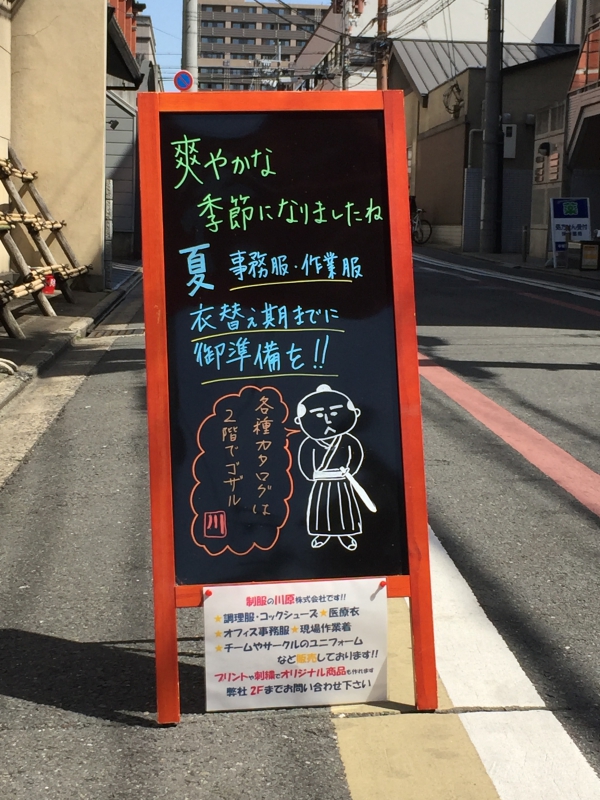 爽やかな
季節になりましたね
夏 事務服・作業服
衣替え期までに
御準備を!!
各種カタログは
2階でゴザル
川
制服の川原株式会社です!!
★調理服・コックシューズ★医療衣
★オフィス事務服★現場作業着
★チームやサークルのユニフォーム
など販売しております!!
プリントや刺繍でオリジナル商品も作れます
弊社2Fまでお問い合わせ下さい